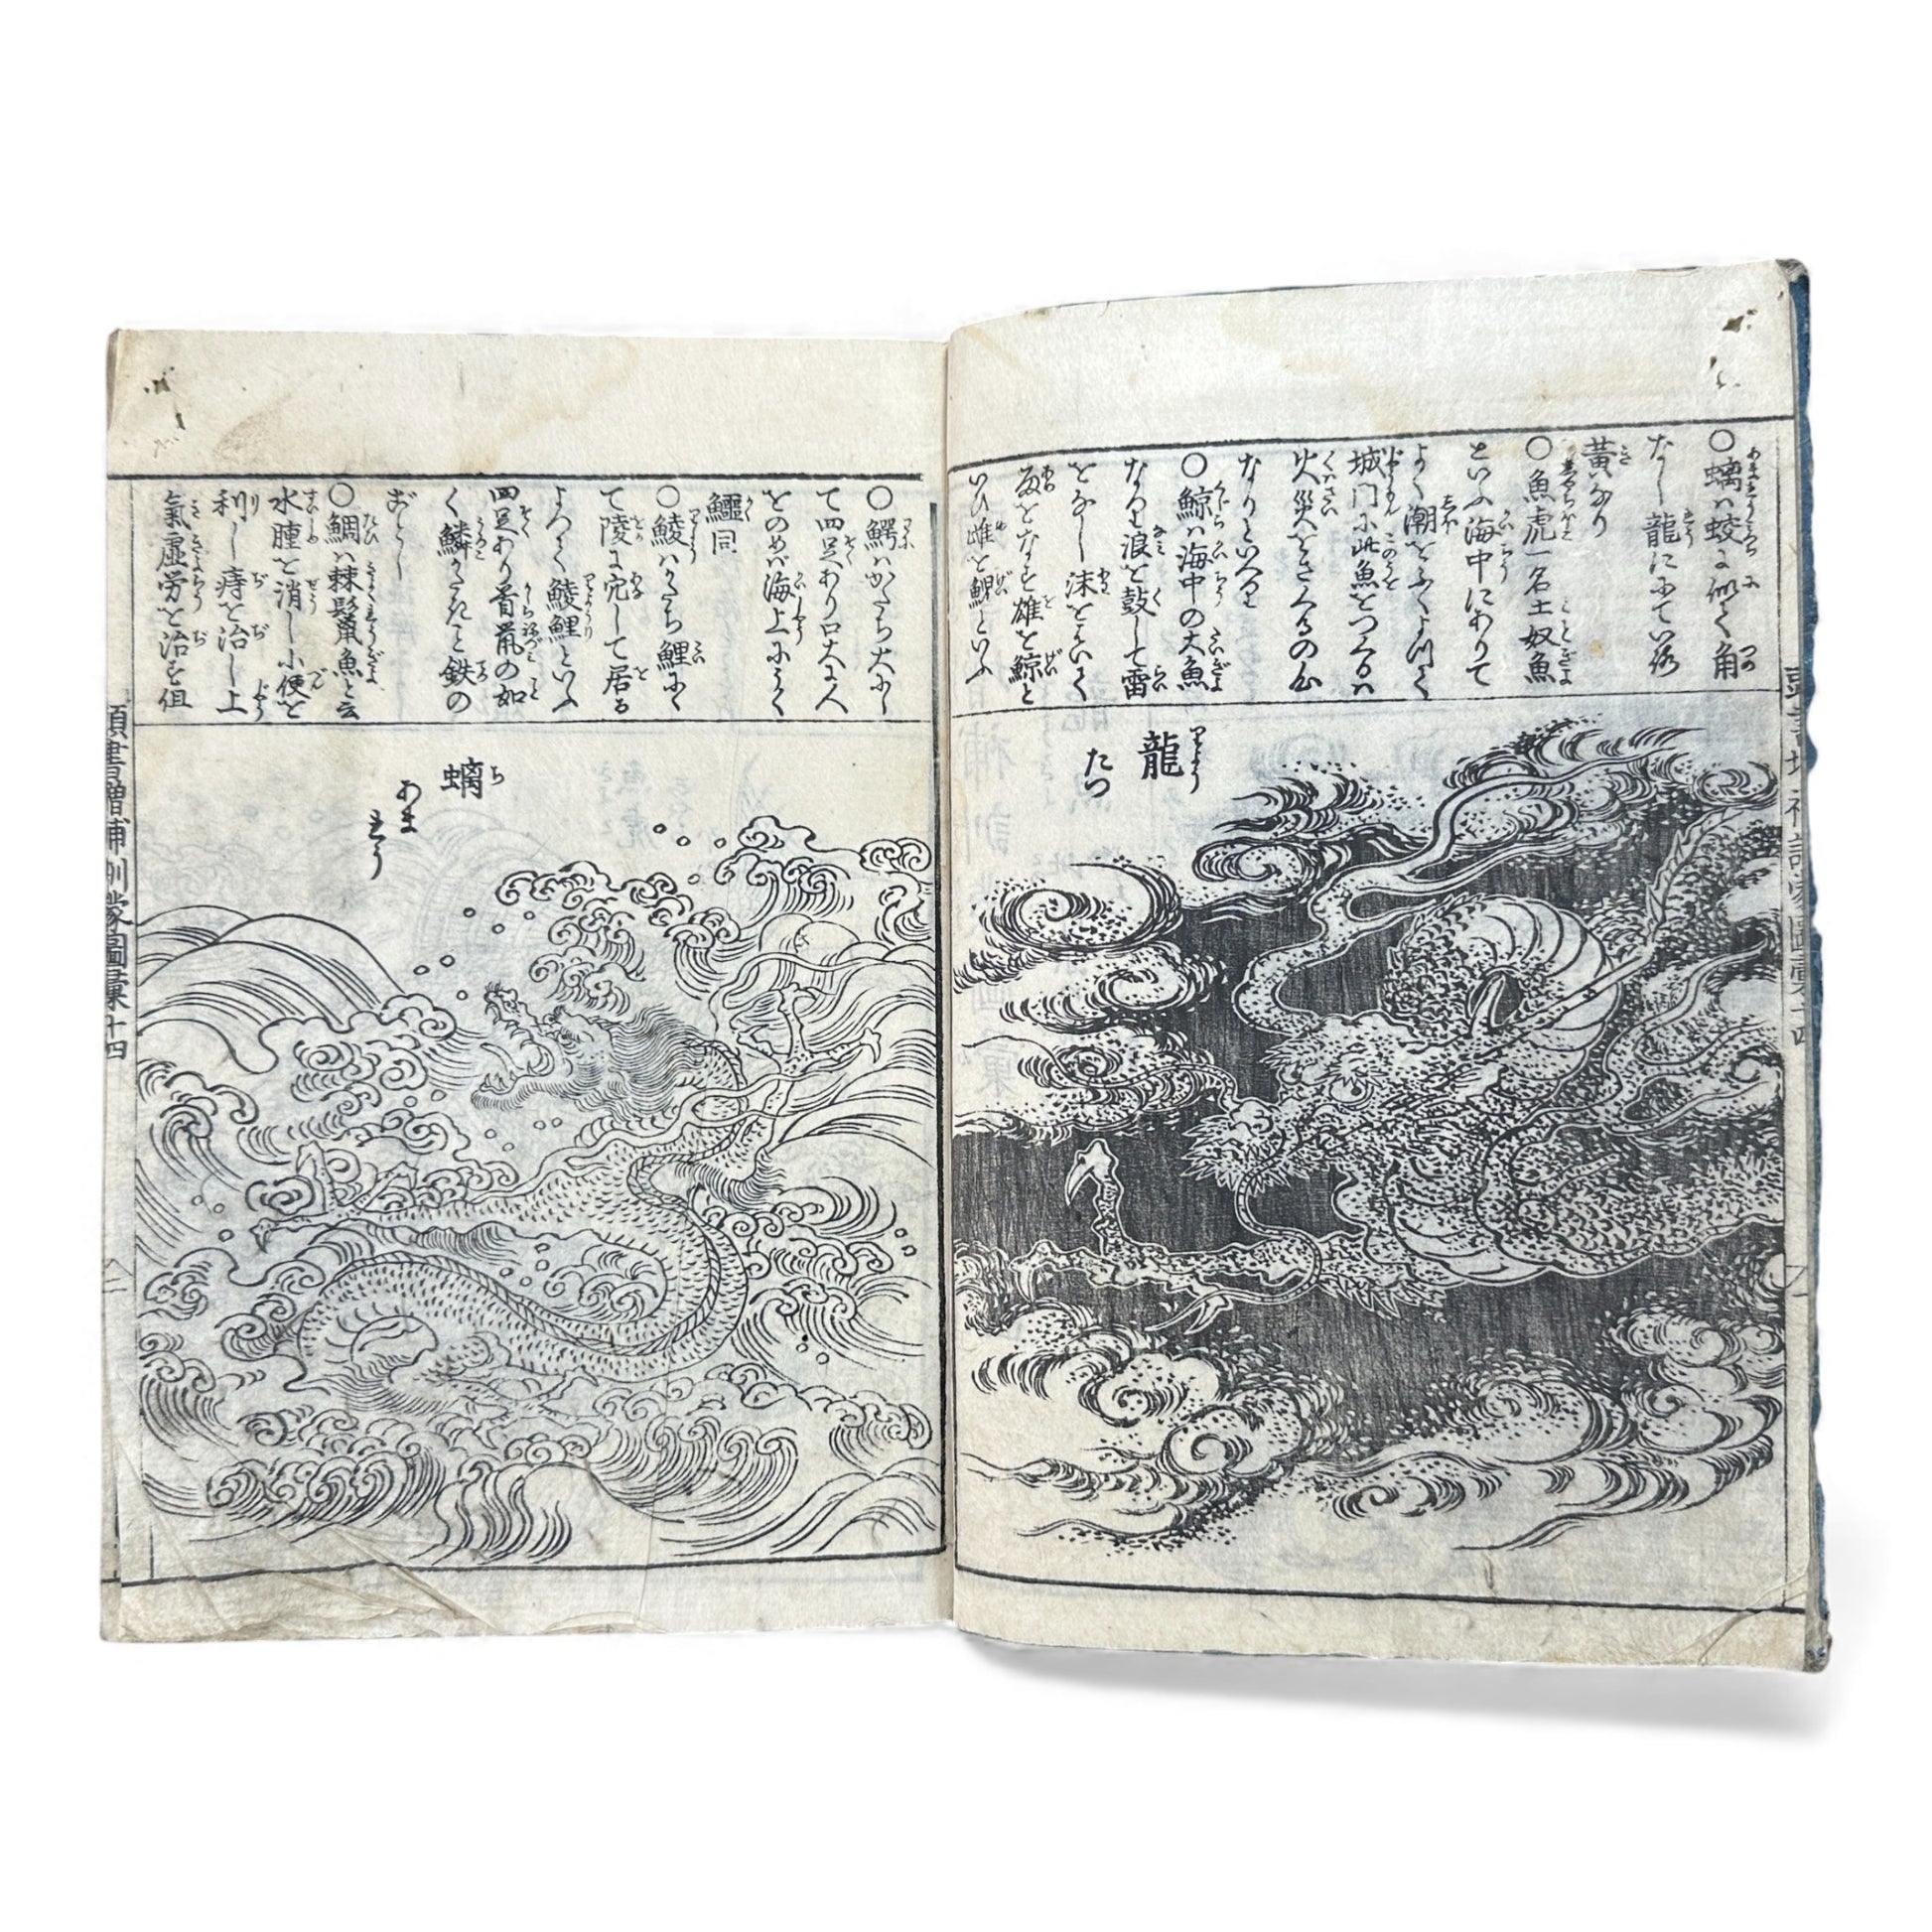 ○螭ハ蛟に似て角
なし龍にゐていろ
黄なり
○魚虎一名土奴魚
といふ海中にありて
よく潮をふくよつて
城門に此魚をつくるハ
火災をさくるの心
なりといへり
○鯨ハ海中の大魚
なり浪を鼓して雷
をなし沫をはいて
雨をなす雄を鯨と
いひ雌を鯢といふ
龍 りよう
たつ
○鰐ハかたち大にし
て四足あり口大人
をのめバ海上にうく
鱷同
○鯪ハかたち鯉にに
て陵に穴して居る
よつて鯪鯉といふ
四足あり首鼠の如
く鱗かたき事鉄の
ごとし
○鯛ハ棘鬣魚と云
水腫を消し小便を
利し痔を治し上
氣虚労を治す但
螭 ち
あま
りう
頭書増補訓蒙圖彙十四